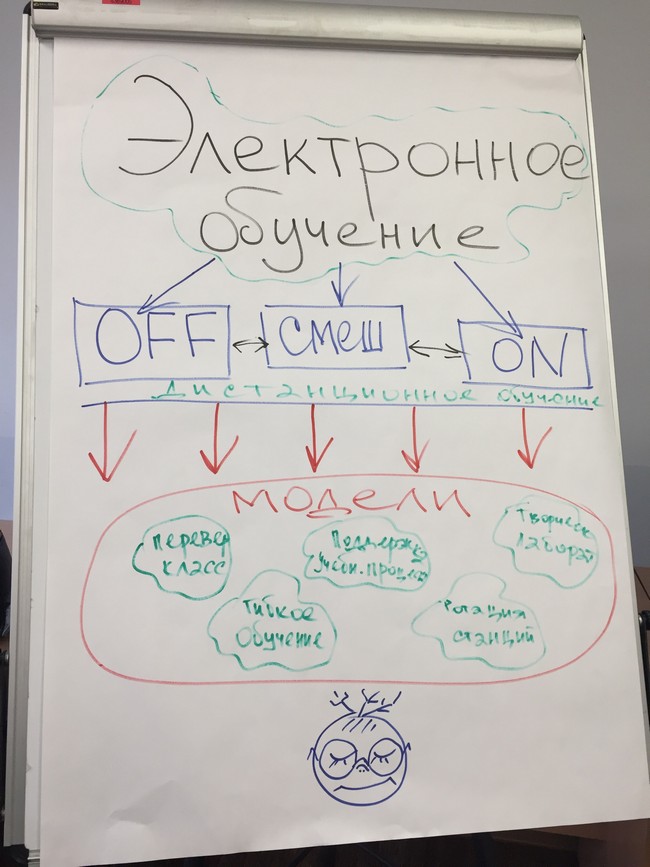 Электронное
обучение
OFF
СМЕШ
ON
Дистанционное обучение
модели
Перевер
класс
Поддержка
учебн. процесс
Творческ
Гибкое
обучение
Ротация
станций